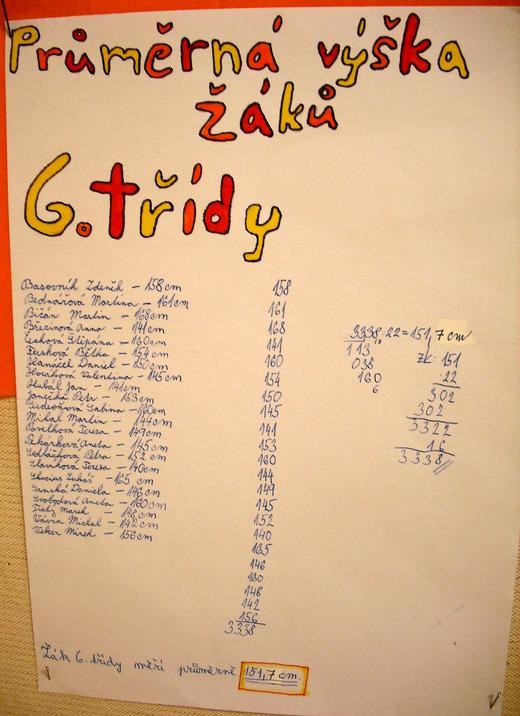 Průměrná výška
žáků
6. třídy
Basovník Zdeněk – 158 cm
Bednářová Martina – 161 cm
Bičán Martin – 168 cm
Březinová Anna – 141 cm
Čechová Štěpána – 160 cm
– 154 cm
Daniel – 150 cm
Valentina – 145 cm
Jan – 141 cm
Petr – 153 cm
Sabina – 160 cm
Michal Martin – 144 cm
Pavelková Tereza – 149 cm
Pekárková Aneta – 145 cm
Petra – 152 cm
Slavíková Tereza – 140 cm
Lukáš – 165 cm
Daniela – 146 cm
Svobodová Aneta – 160 cm
Tichý Marek – 148 cm
Vávra Michal – 142 cm
Mirek – 156 cm
158
161
168
141
160
154
150
145
141
153
160
144
149
145
152
140
165
146
160
148
142
156
3338
3338:22=151,7 cm
113
038
160
6
zk: 151
22
302
302
3322
16
3338
Žák 6. třídy měří průměrně 151,7 cm.